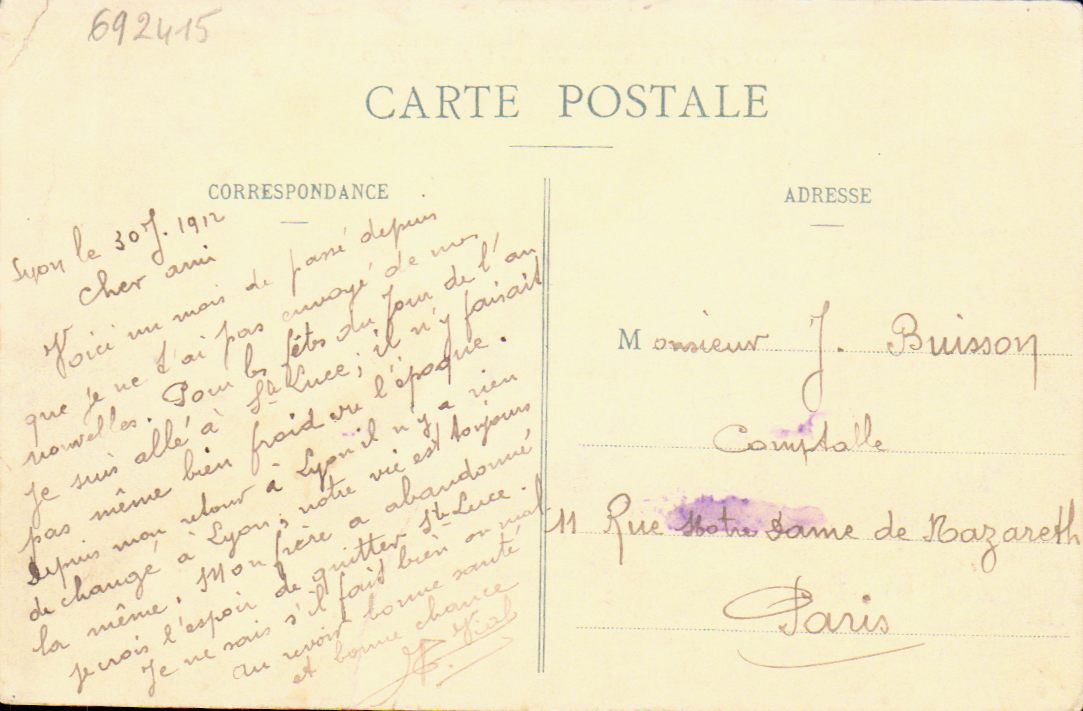 692415
CARTE POSTALE
CORRESPONDANCE
Lyon le 30 J. 1912
Cher ami
Voici un mois de passé depuis
que je ne t'ai pas envoyé de mes
nouvelles. Pour les fêtes du Jour de l'an
je suis allé à Ste Luce; il n'y faisait
pas même bien froid vu l'époque.
Depuis mon retour à Lyon il n'y a rien
de changé à Lyon, notre vie est toujours
la même. Mon frère a abandonné
je crois l'espoir de quitter Ste Luce.
Je ne sais s'il fait bien ou mal
au revoir bonne santé
et bonne chance
Vial
ADRESSE
Monsieur J. Buisson
Comptable
11 Rue Notre Dame de Nazareth
Paris